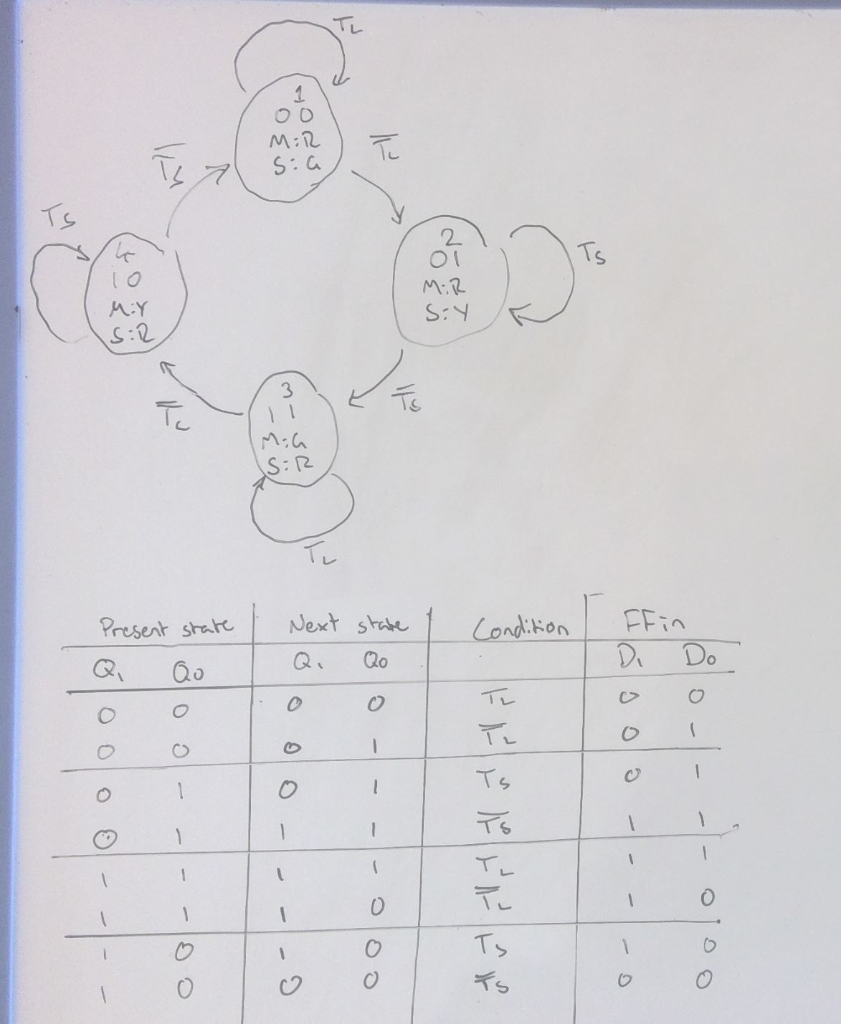 T_L
1
0 0
M:R
S:G
T̅_S
T̅_L
T_S
4
1 0
M:Y
S:R
2
0 1
M:R
S:Y
T_S
T̅_L
3
1 1
M:G
S:R
T̅_S
T_L
Present state Next state Condition FF in
Q₁ Q₀ Q₁ Q₀ D₁ D₀
0 0 0 0 T_L 0 0
0 0 0 1 T̅_L 0 1
0 1 0 1 T_S 0 1
0 1 1 1 T̅_S 1 1
1 1 1 1 T_L 1 1
1 1 1 0 T̅_L 1 0
1 0 1 0 T_S 1 0
1 0 0 0 T̅_S 0 0